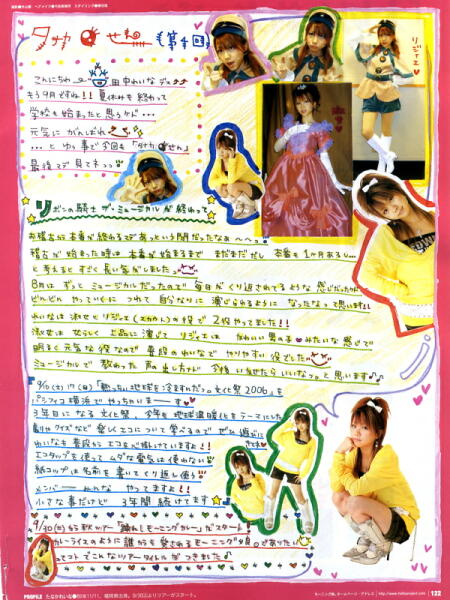 タナカ せん 第4回
こんにちわ 田中れいなデス
もう9月ですね!! 夏休みも終わって
学校も始まったと思うケド…
元気にがんばれ
…とゆう事で今回も「タナカ せん」
最後マデ見てネっっ
リジェ♥
淑女♥
リボンの騎士 ザ・ミュージカルが終わって
お稽古が本番が終わるマデあっという間だったなぁへへっ
稽古が始まった時は 本番が始まるまで まだまだだし 本番も1ヶ月あるし…
と考えるとすごく長い気がしました
8月はずっとミュージカルだったので 毎日がくり返されてるような感じだったケド
どんどん やっていくに つれて 自分なりに 演じられるように なったなって思います!!
れいなは 淑女とリジェ(ヌカルん)の役で 2役やってました!!
淑女は 女らしく 上品に 演じて リジェは かわいい男の子 みたいな感じで
明るく元気な役なので 普段のれいなで やりやすい役でした
ミュージカルで 教わった声の出し方ナド 今後 いかせたらいいなっ。と思います
9/10(土) 17(日)「熱っちい地球を冷ますんだっ。文化祭2006」を
パシフィコ横浜でやっちいまーす
3年目になる文化祭、今年も地球温暖化をテーマにした
劇やクイズなど 楽しくエコについて学べるので ぜひ遊びに
きてネ
れいなも普段からエコを心掛けていますよ!!
エコタップを使って ムダな電気は使わない
紙コップは名前を書いてくり返し使う
メンバーみんな やってますよ!!
小さな事だけど 3年間続けてます
9/30(土)から秋ツアー「踊れ!モーニングカレー」がスタート!
カレーライスのように誰からも愛されるモーニング娘。でありたい
ってコトでこんなツアータイトルがつきました
PROFILE たなかれいな●89年11/11、福岡県出身。9/30よりツアーがスタート。
モーニング娘。ホームページ・アドレス http://www.helloproject.com/ 122